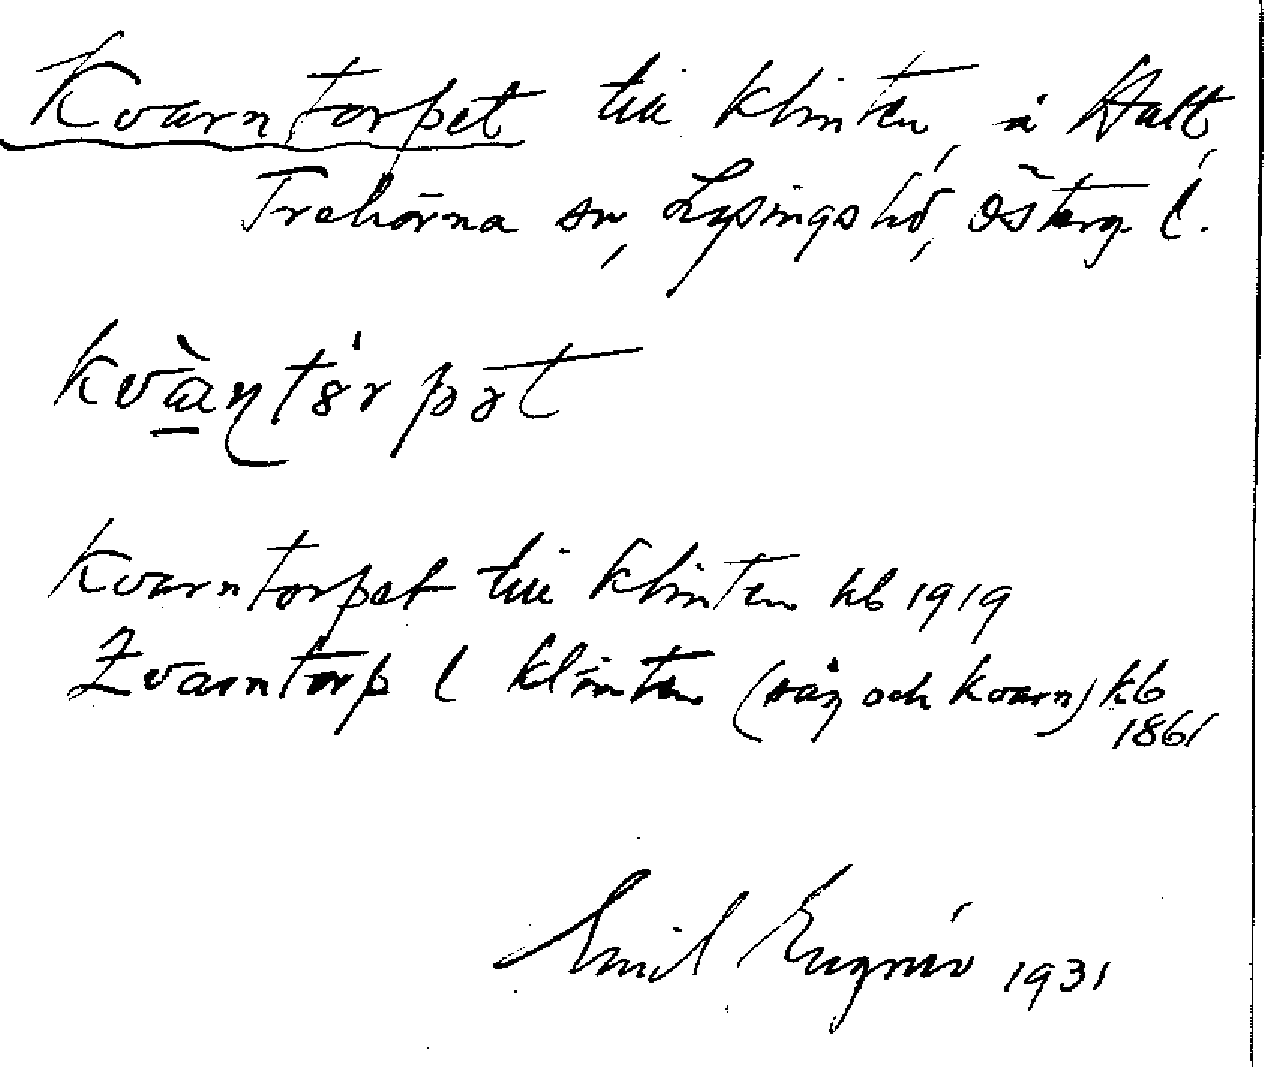 Kvarntorpet till Klinten, å Hult,
Trehörna sn, Lysings hd, Österg. l.
kvàṉtör pət
Kvarntorpet till Klinten kb 1919
Kvarntorp l Klinten (såg och kvarn) kb
1861
Emil 1931